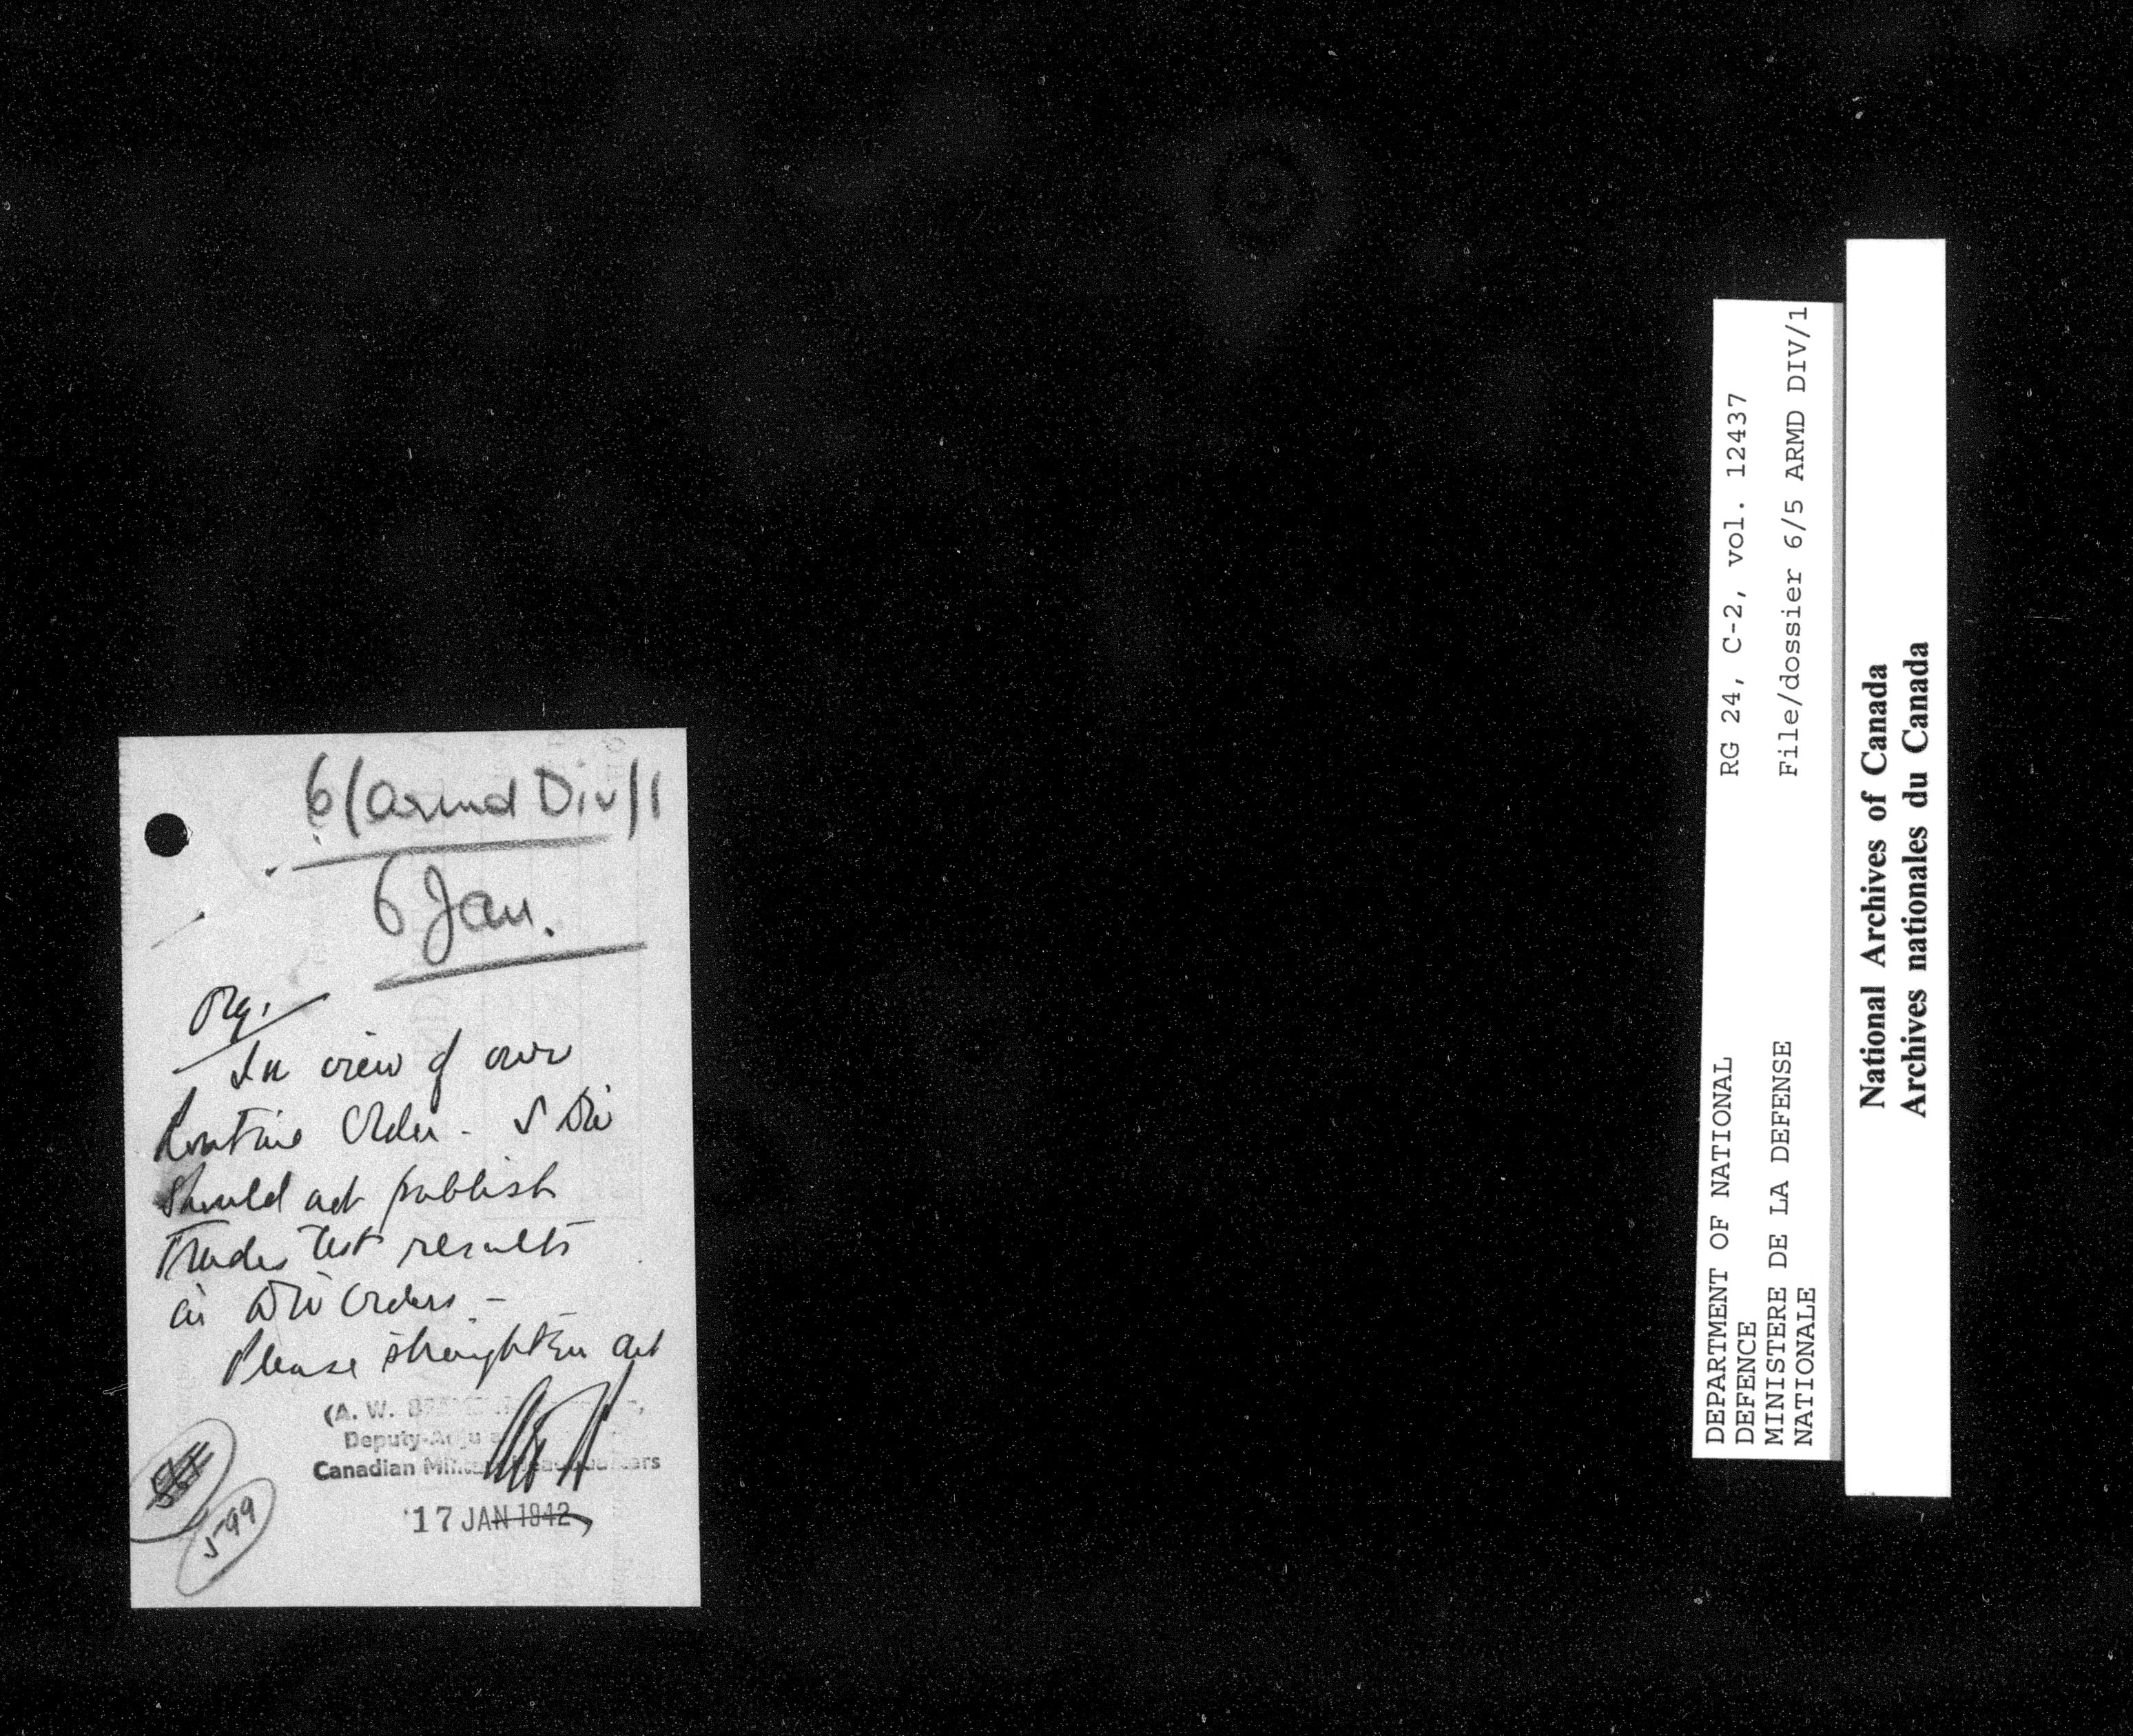 6/Armd Div/1
6 Jan.
Org.
In view of our
Routine Order - 5 Div
should not publish
Trades Test results
in Div Orders -
Please straighten out
(A. W.
Deputy-
Canadian Military Headquarters
17 JAN 1942
599
RG 24, C-2, vol. 12437
File/dossier 6/5 ARMD DIV/1
DEPARTMENT OF NATIONAL
DEFENCE
MINISTERE DE LA DEFENSE
NATIONALE
National Archives of Canada
Archives nationales du Canada